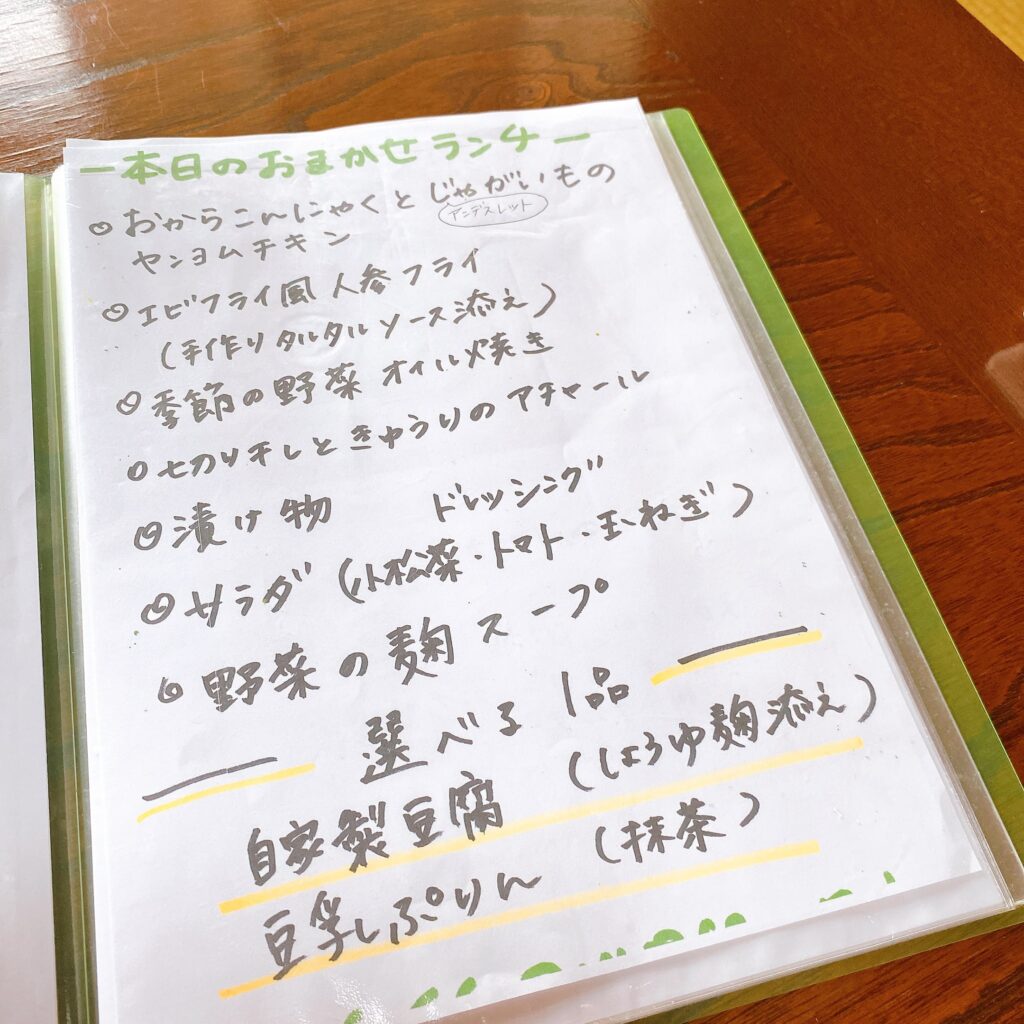 ー本日のおまかせランチー
おからこんにゃくとじゃがいもの
アンデスレット
ヤンヨムチキン
エビフライ風人参フライ
(手作りタルタルソース添え)
季節の野菜オイル焼き
切り干しときゅうりのアチャール
漬け物
ドレッシング
サラダ(小松菜・トマト・玉ねぎ)
野菜の麹スープ
選べる1品
自家製豆腐(しょうゆ麹添え)
豆乳ぷりん(抹茶)